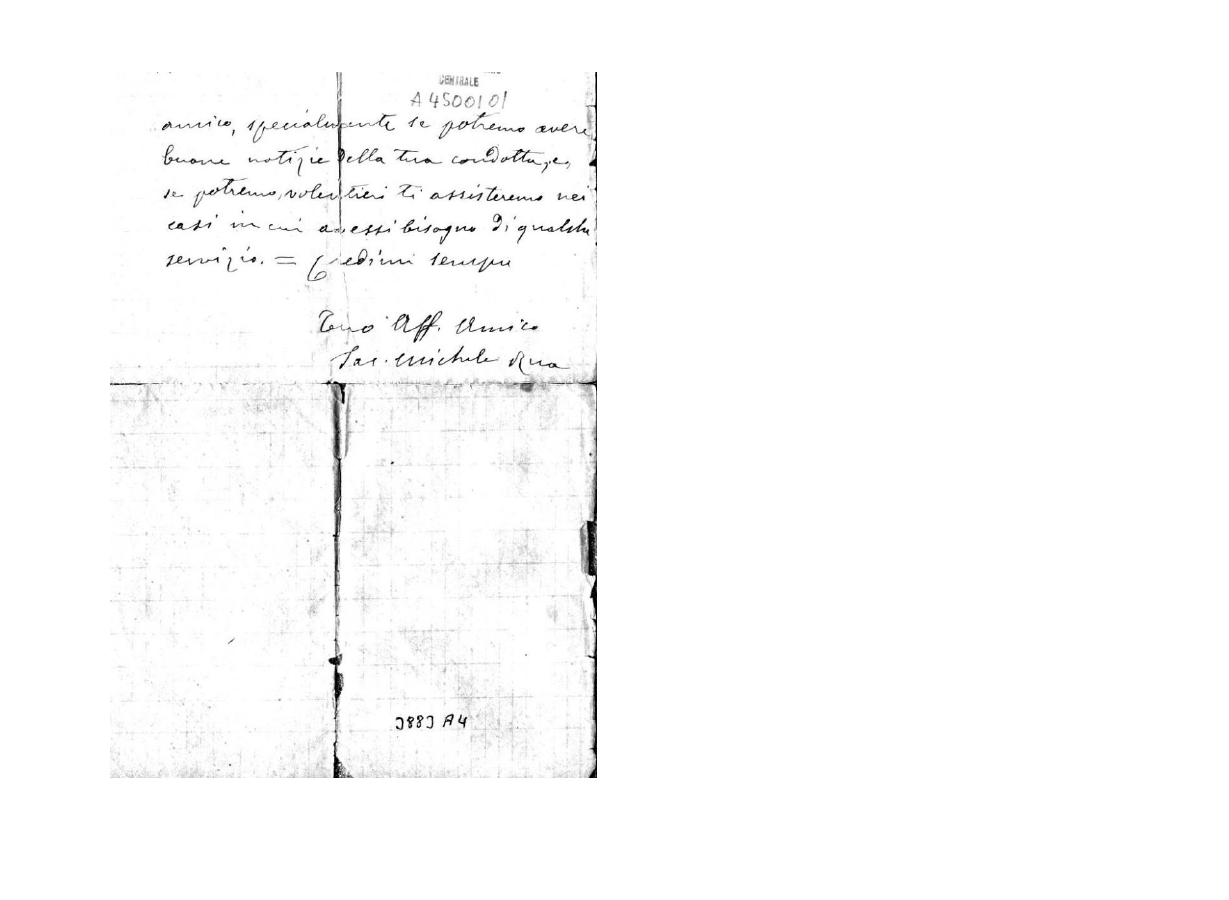 CENTRALE
A4500101
amico, specialmente se potremo avere
buone notizie della tua condotta, e,
se potremo, volentieri ti assisteremo nei
casi in cui avessi bisogno di qualche
servizio. = Credimi sempre
Tuo Aff. Amico
Sac. Michele Rua
3883 A4